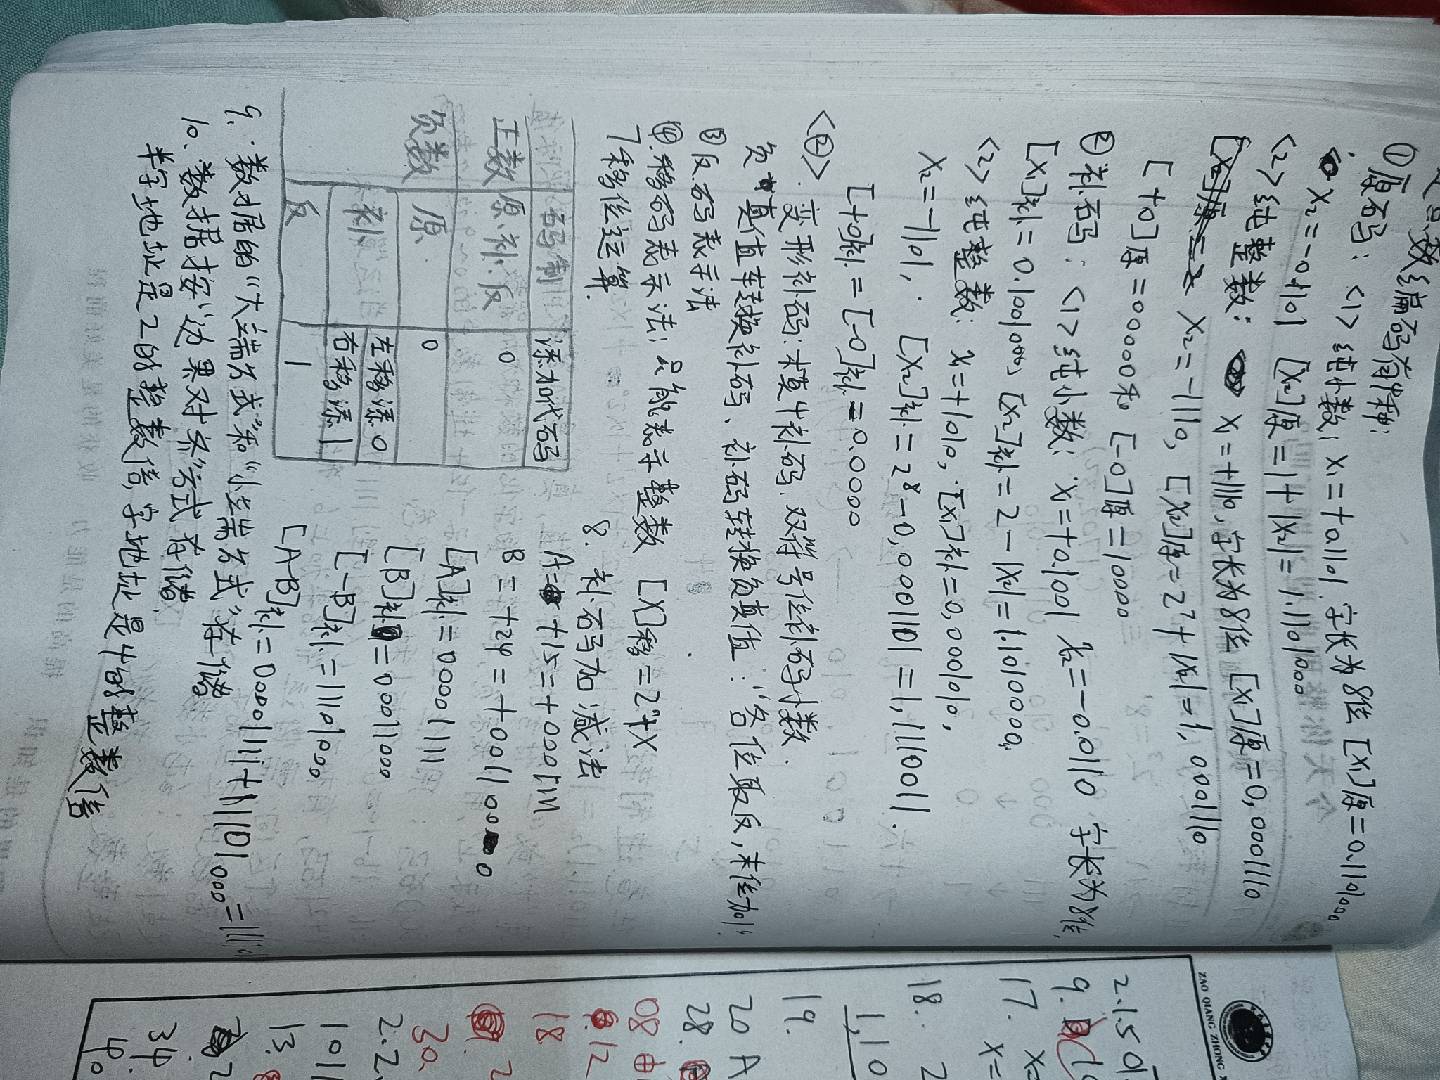 定点数编码有4种:
①原码: <1>纯小数: X₁=+0.1101 字长为8位 [X₁]原=0.1101000
X₂=-0.1101 [X₂]原=1+|X₂|=1.1101000
<2>纯整数: X₁=+1110, 字长为8位 [X₁]原=0,0001110
X₂=-1110, [X₂]原=2⁷+|X₂|=1,0001110
[+0]原=00000和 [-0]原=10000
②补码: <1>纯小数: X₁=+0.1001 X₂=-0.0110 字长为8位,
[X₁]补=0.1001000, [X₂]补=2-|X₂|=1.1010000.
<2>纯整数: X₁=+1010, [X₁]补=0,0001010,
X₂=-1101, [X₂]补=2⁸-0,0001101=1,1110011.
[+0]补=[-0]补=0.0000
<②>. 变形补码:模4补码. 双符号位补码小数.
负真值转换补码、补码转换负真值:"各位取反,末位加1"
③反码表示法
④.移码表示法:只能表示整数 [X]移=2ⁿ+X
7移位运算.
码制 添加代码
正数 原.补.反 0
负数 原 0
补 左移添0
右移添1
反 1
8. 补码加减法
A=+15=+0001111
B=+24=+0011000
[A]补=00001111
[B]补=00011000
[-B]补=11101000
[A-B]补=00001111+11101000=111
9.数据的"大端方式"和"小端方式"存储
10.数据按"边界对齐"方式存储.
半字地址是2的整数倍,字地址是4的整数倍
ZAO QIANG ZHONG X
2.1.5
9.
17. X=
X=
18. 2
1,10
19.
20 A
28.
08 由
12
18
30.
2.2.
1011
13.
34.
40